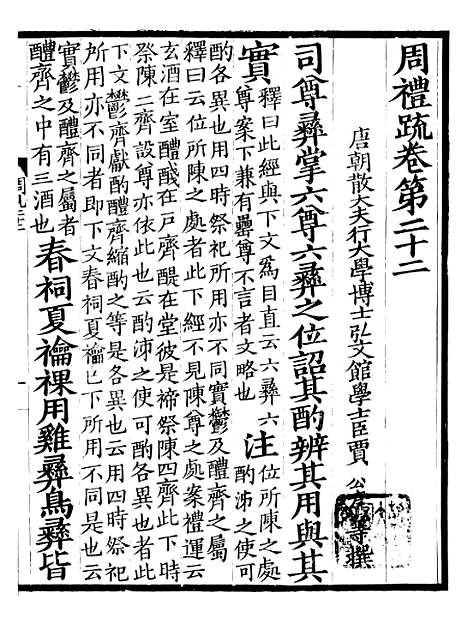 周禮疏卷第二十二
唐朝散大夫行大學博士弘文館學士臣賈公彥等撰
司尊彝掌六尊六彝之位詔其酌辨其用與其
實
釋曰此經與下文為目直云六彝六
尊案下兼有罍尊不言者文略也
注
位所陳之處
酌泲之使可
酌各異也用四時祭祀所用亦不同實鬱及醴齊之屬
釋曰云位所陳之處者此下經不見陳尊之處案禮運云
玄酒在室醴醆在戶齊醍在堂彼是禘祭陳四齊此下時
祭陳二齊設尊亦依此也云酌泲之使可酌各異也者此
下文鬱齊獻酌醴齊縮酌之等是各異也云用四時祭祀
所用亦不同者即下文春祠夏禴已下所用不同是也云
實鬱及醴齊之屬者
醴齊之中有三酒也
春祠夏禴祼用雞彝鳥彝皆